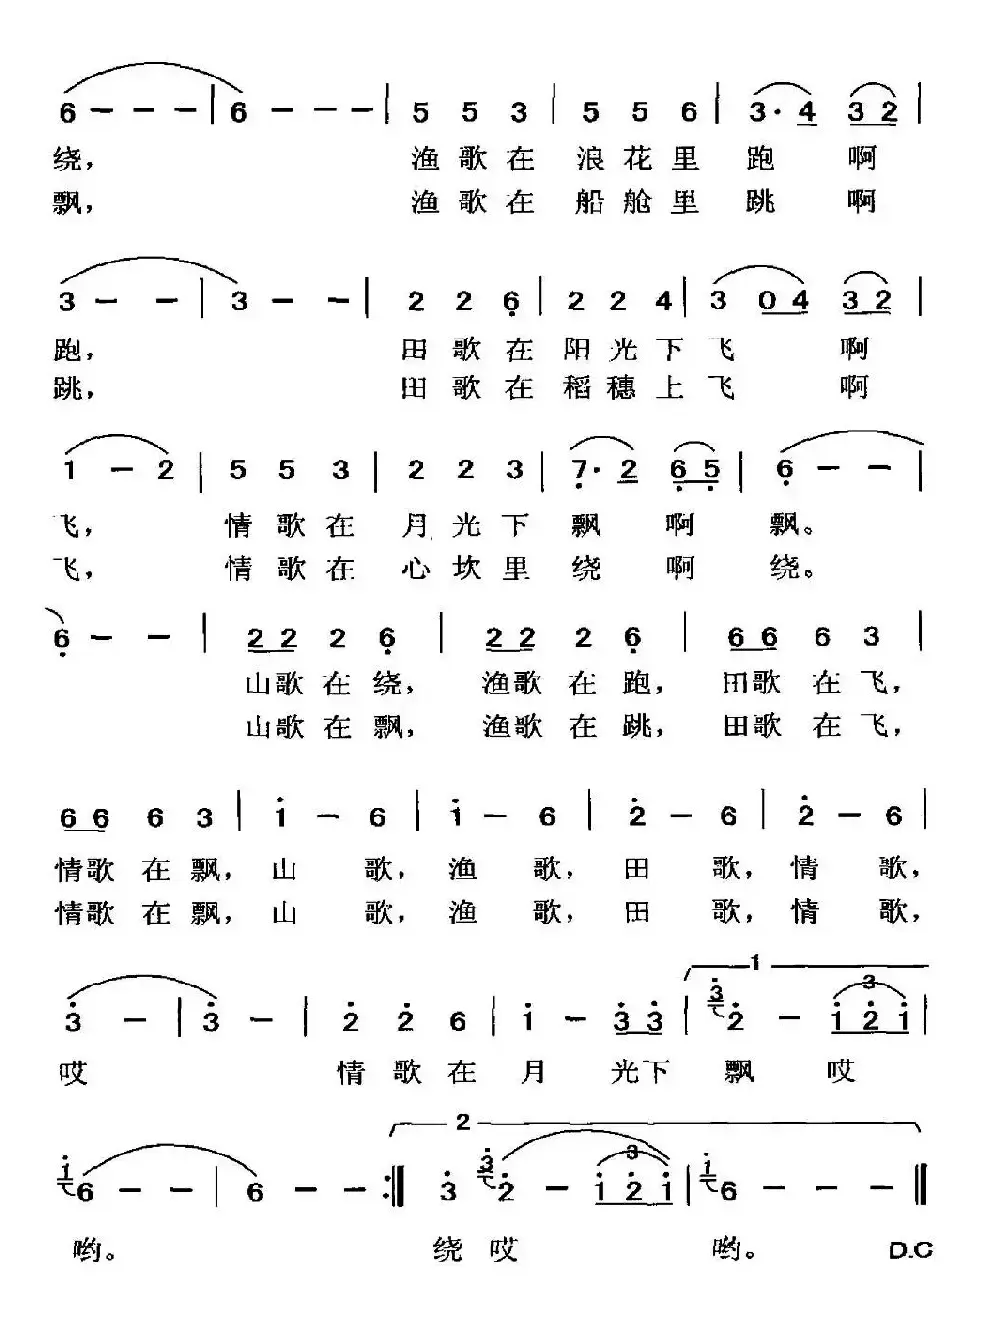 6 - - - | 6 - - - | 5 5 3 | 5 5 6 | 3· 4 3 2 |
绕， 渔歌在 浪花里 跑 啊
飘， 渔歌在 船舱里 跳 啊
3 - - | 3 - - | 2 2 6 | 2 2 4 | 3 04 32 |
跑， 田歌在 阳光下 飞 啊
跳， 田歌在 稻穗上 飞 啊
1 - 2 | 5 5 3 | 2 2 3 | 7· 2 65 | 6 - - |
飞， 情歌在 月光下 飘 啊 飘。
飞， 情歌在 心坎里 绕 啊 绕。
6 - - | 22 2 6 | 22 2 6 | 66 6 3
山歌在绕， 渔歌在跑， 田歌在飞，
山歌在飘， 渔歌在跳， 田歌在飞，
66 6 3 | i - 6 | i - 6 | 2 - 6 | 2 - 6 |
情歌在飘， 山 歌， 渔 歌， 田 歌， 情 歌，
情歌在飘， 山 歌， 渔 歌， 田 歌， 情 歌，
1
3
3 - | 3 - | 2 2 6 | i - 33 | 3 2 - i2i |
哎 情歌在 月 光下 飘 哎
2
3
i 6 - - | 6 - - :|| 3 3 2 - i2i | i 6 - - ||
哟。 绕 哎 哟。 D.C